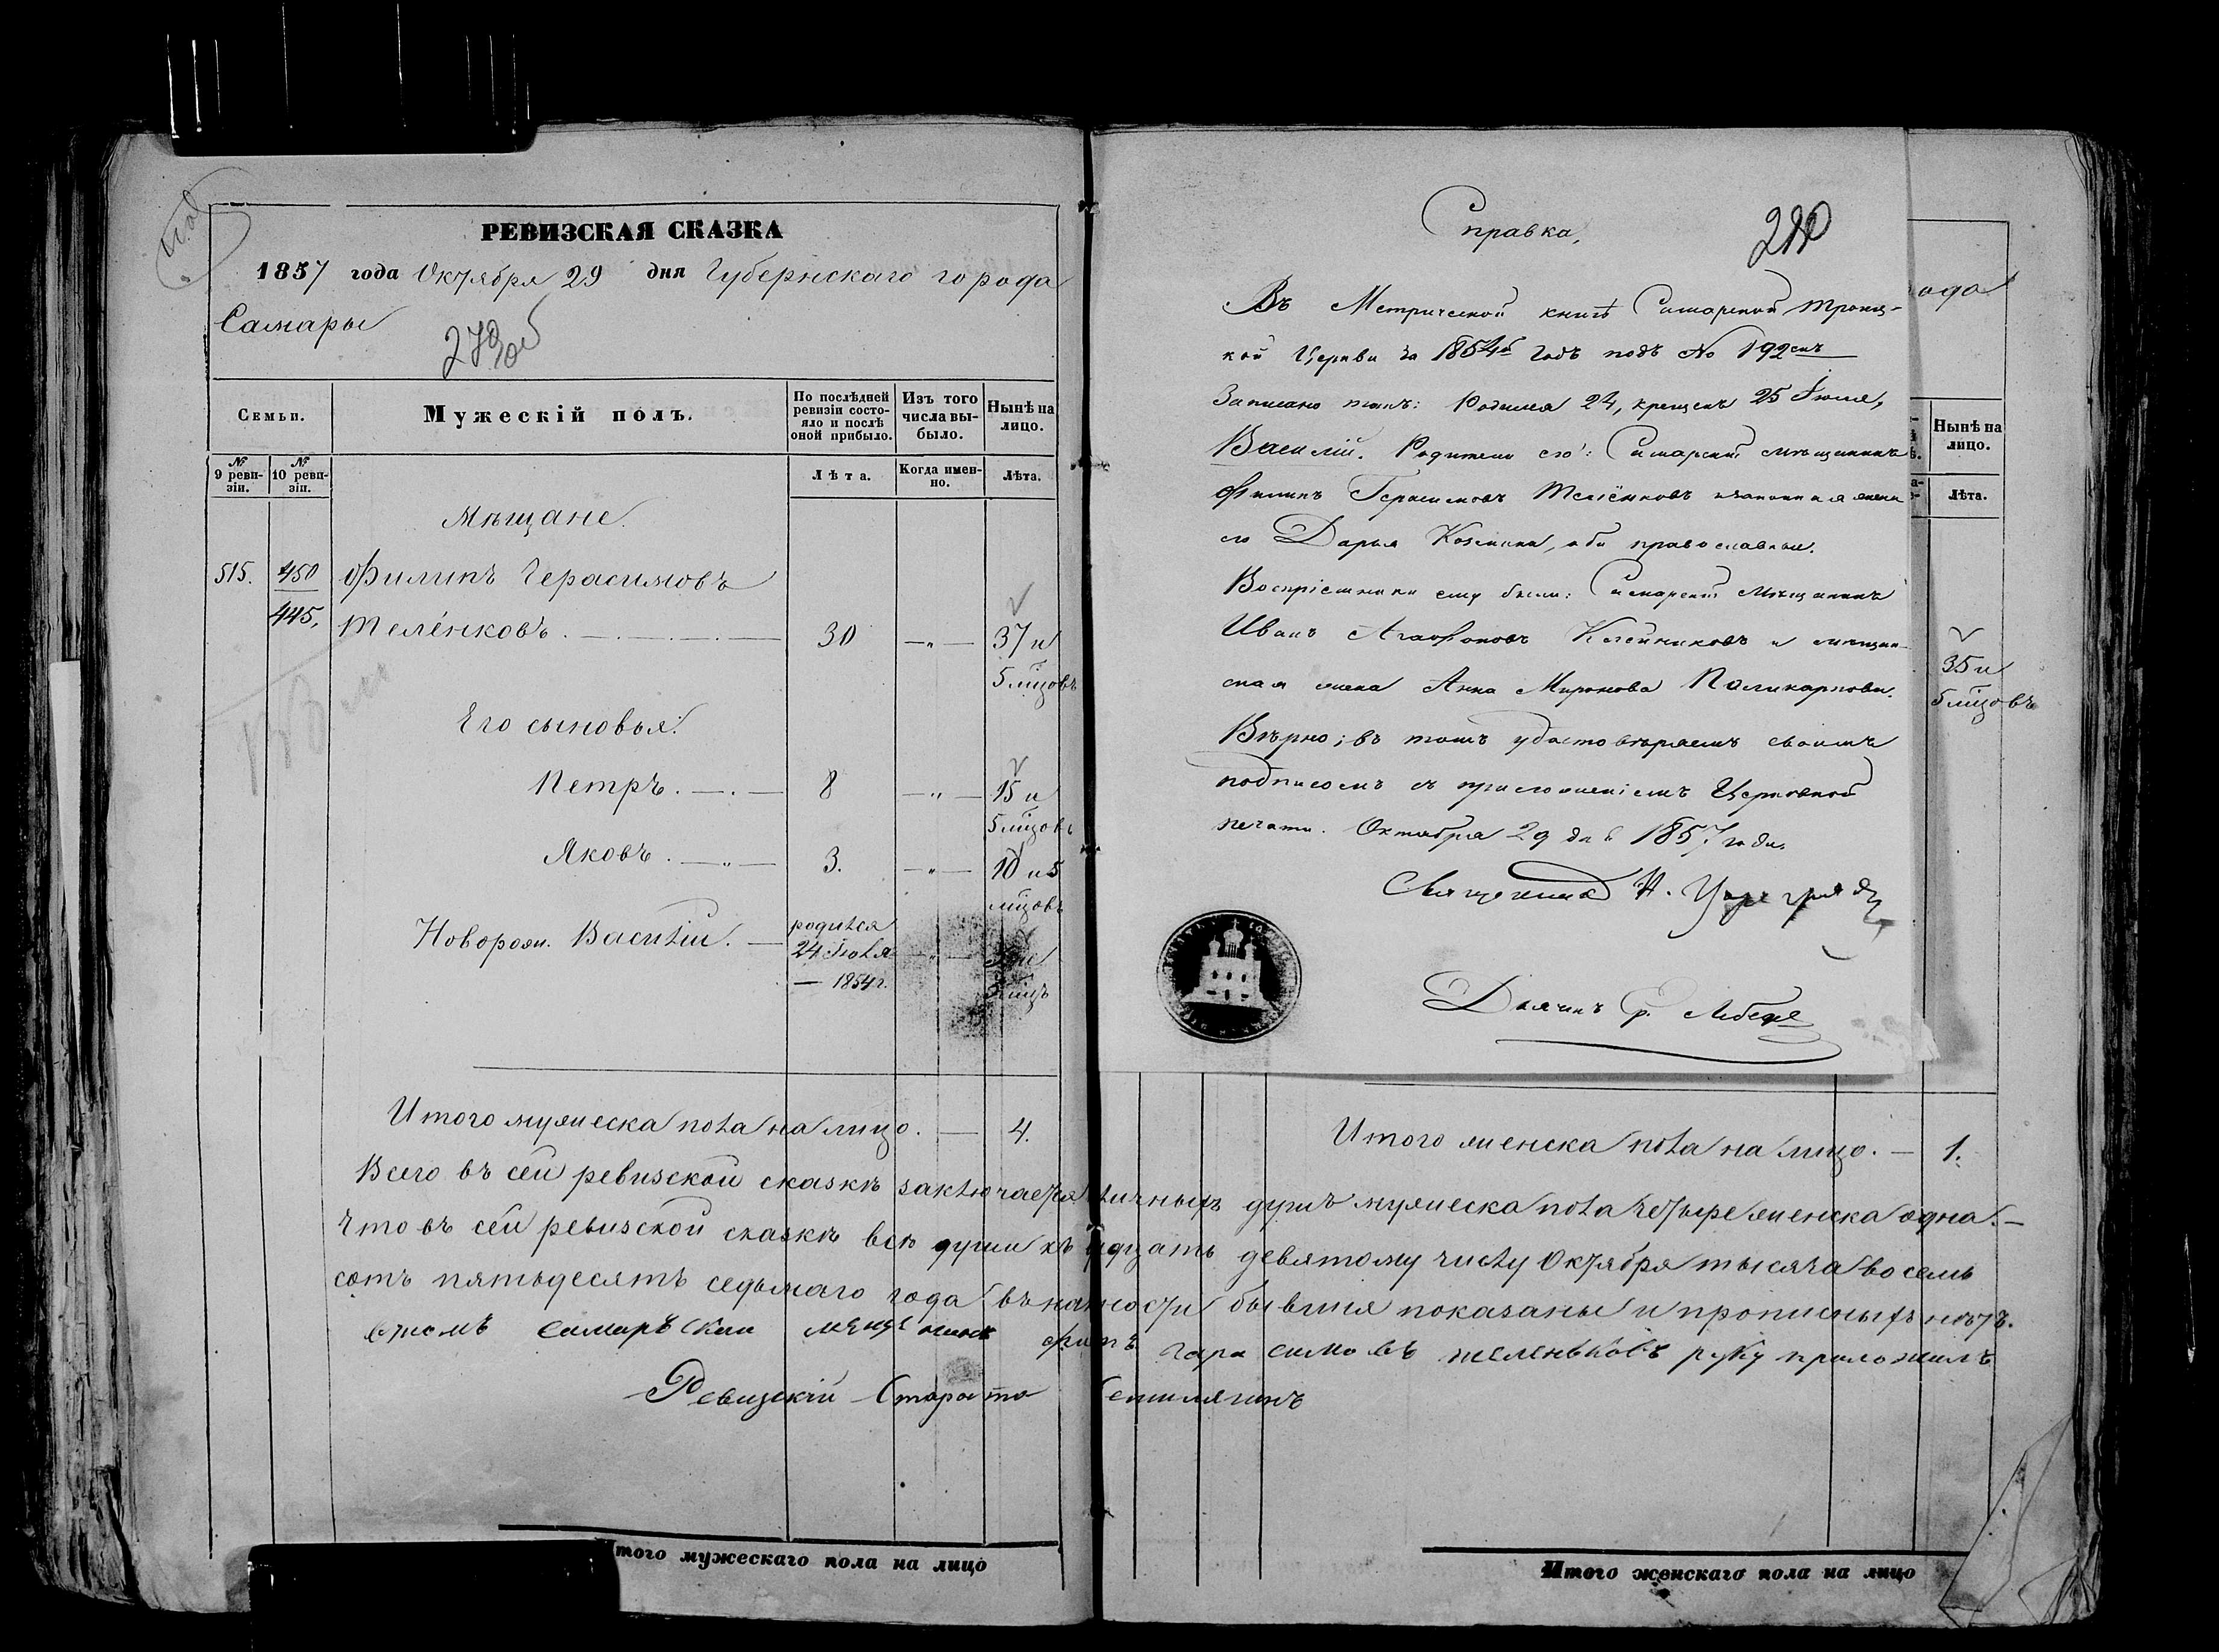 РЕВИЗСКАЯ СКАЗКА
1857 года Октября 29 дня Губернскаго города
Самары
279 об
Семьи.
Мужескій полъ.
По послѣдней ревизіи состояло и послѣ оной прибыло.
Изъ того числа выбыло.
Нынѣ на лицо.
№ 9 ревизіи.
№ 10 ревизіи.
Лѣта.
Когда именно.
Лѣта.
Мѣщане.
515. 450 Филипъ Герасимовъ
445. Телёнковъ. 30 —„— 37 и
5 мѣцовъ
Его сыновья:
Петръ. 8 —„— 15 и
5 мѣцовъ
Яковъ. 3. —„— 10 и 5
мѣцовъ
Новорож. Василій. родился
24 Іюля
1854 г.
Итого мужеска пола на лицо. — 4.
Всего въ сей ревизской сказкѣ заключается личныхъ душъ мужеска пола четыре женска одна. —
Что въ сей ревизской сказкѣ всѣ души къ двадцать девятому числу Октября тысяча восемь
сотъ пятьдесятъ седьмаго года въ наличности бывшия показаны и прописныхъ нѣтъ.
руку приложилъ
Ревизскій Староста
того мужескаго пола на лицо
Справка,
280
Въ Метрической книгѣ Самарской Троиц-
кой Церкви за 1854й годъ подъ № 192емъ
Записано такъ: Родился 24, крещенъ 25 Іюля,
Василій. Родители его: Самарскій мѣщанинъ
Филипъ Герасимовъ Телёнковъ и законная жена
его Дарья Козмина, оба православные.
Воспріемники ему были: Самарскій Мѣщанинъ
Иванъ Агафоновъ и мѣщан-
ская жена Анна Миронова Поликарпова.
Вѣрно; въ томъ удостовѣряемъ своимъ
подписомъ съ приложеніемъ Церковной
печати. Октября 29 дня 1857 года.
Священникъ
Дьячокъ
ода
Нынѣ на лицо.
Лѣта.
35 и
5 мѣцовъ
Итого женска пола на лицо. — 1.
Итого женскаго пола на лицо